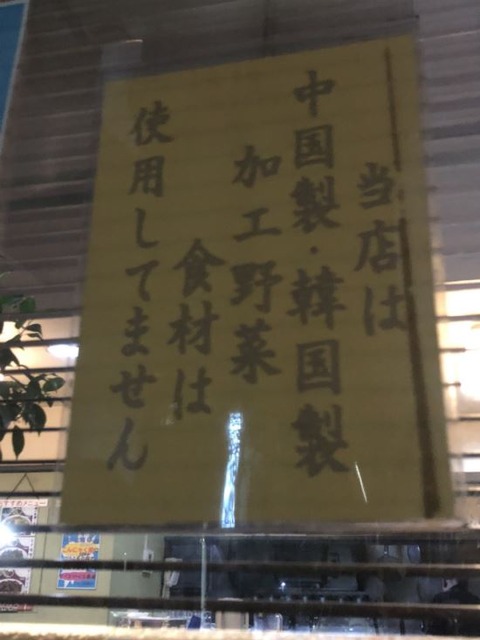 当店は
中国製・韓国製
加工野菜
食材は
使用してません